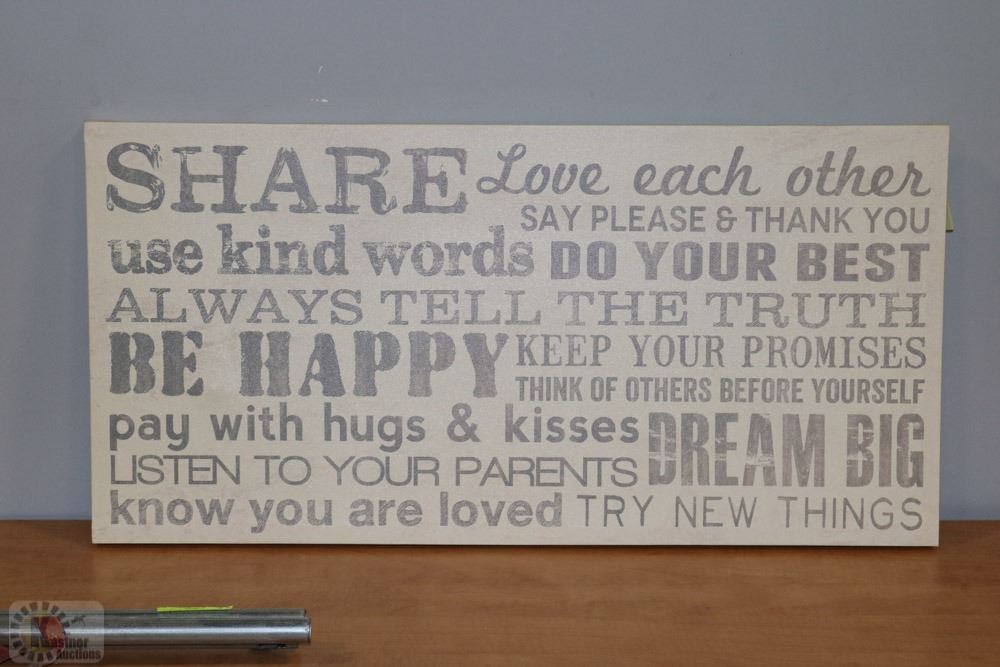 SHARE Love each other
SAY PLEASE & THANK YOU
use kind words DO YOUR BEST
ALWAYS TELL THE TRUTH
BE HAPPY KEEP YOUR PROMISES
THINK OF OTHERS BEFORE YOURSELF
pay with hugs & kisses DREAM BIG
LISTEN TO YOUR PARENTS
know you are loved TRY NEW THINGS
Kastner
Auctions